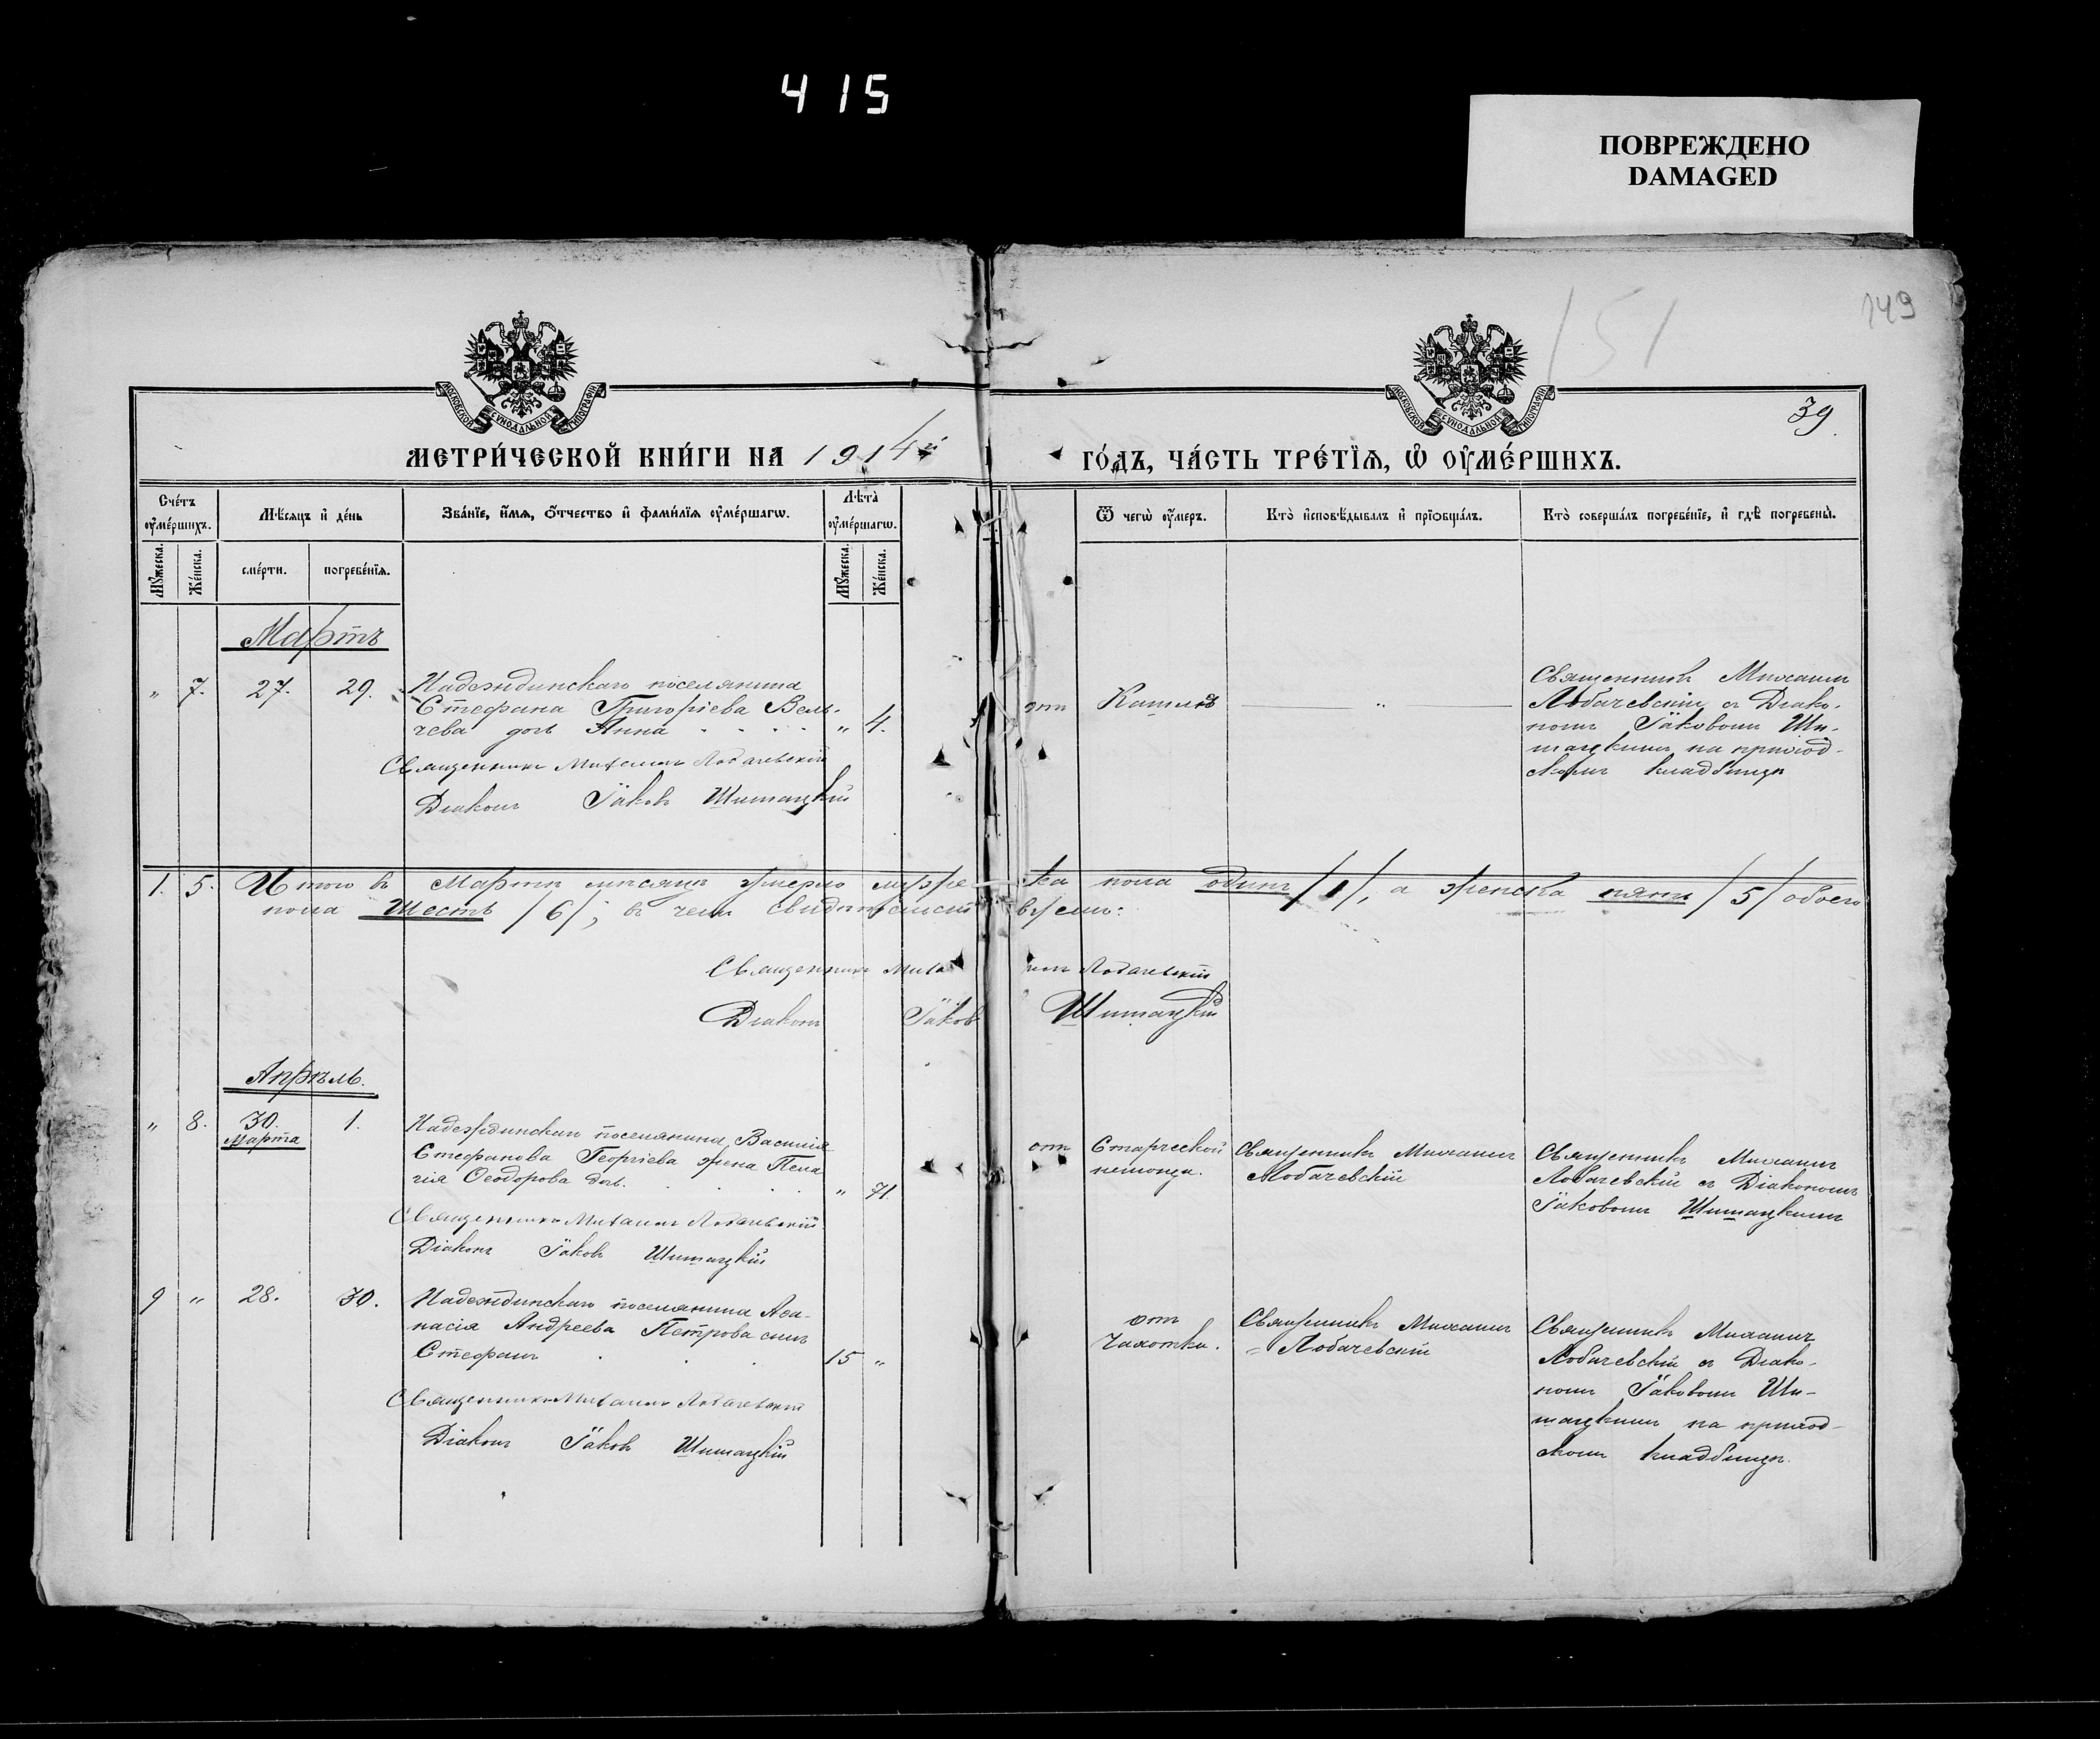 415
ПОВРЕЖДЕНО
DAMAGED
151
149
39
МОСКОВСКОЙ СѴНОДАЛЬНОЙ ТИПОГРАФІИ
МОСКОВСКОЙ СѴНОДАЛЬНОЙ ТИПОГРАФІИ
МЕТРИ́ЧЕСКОЙ КНИ́ГИ НА 1914й
ГО́ДЪ, ЧА́СТЬ ТРЕ́ТЇѦ, Ѡ҆ ОУ҆МЕ́РШИХЪ.
Сче́тъ оу҆ме́ршихъ.
Мѣ́сяцъ и҆ де́нь
Зва́нїе, и҆́мѧ, ѻ҆́тчество и҆ фами́лїѧ оу҆ме́ршагѡ.
Лѣта̀ оу҆ме́ршагѡ.
Ѿ чегѡ̀ оу҆́меръ.
Кто̀ и҆сповѣ́дывалъ и҆ прїѡбща́лъ.
Кто̀ соверша́лъ погребе́нїе, и҆ гдѣ̀ погребены̀.
Мꙋ́жеска.
Же́нска.
сме́рти.
погребе́нїѧ.
Мꙋ́жеска.
Же́нска.
Мартъ
" 7. 27. 29. Надеждинскаго поселянина
Стефана Григоріева Вель-
чева дочь Анна " 4.
Священникъ Михаилъ Лобачевскій
Діаконъ Іаковъ Шимацкій
отъ Кашля
"
Священникъ Михаилъ
Лобачевскій съ Діако-
номъ Іаковомъ Ши-
мацкимъ на приход-
скомъ кладбищѣ
1. 5. Итого въ Мартѣ мѣсяцѣ умерло муже ска пола одинъ /1/, а женска пять /5/ обоего
пола шесть /6/; въ чемъ свидѣтельст вуемъ:
Священникъ Миха илъ Лобачевскій
Діаконъ Іаковъ Шимацкій
Апрѣль.
" 8. 30. Марта 1. Надеждинскаго поселянина Василія
Стефанова Георгіева жена Пела
гія Ѳеодорова дочь. " 71
Священникъ Михаилъ Лобачевскій
Діаконъ Іаковъ Шимацкій
отъ Старческой
немощи.
Священникъ Михаилъ
Лобачевскій
Священникъ Михаилъ
Лобачевскій съ Діакономъ
Іаковомъ Шимацкимъ
9 " 28. 30. Надеждинскаго поселянина Аѳа-
насія Андреева Петрова сынъ
Стефанъ 15 "
Священникъ Михаилъ Лобачевскій
Діаконъ Іаковъ Шимацкій
отъ
Чахотки.
Священникъ Михаилъ
Лобачевскій
Священникъ Михаилъ
Лобачевскій съ Діако-
номъ Іаковомъ Ши-
мацкимъ на приход-
скомъ кладбищѣ.